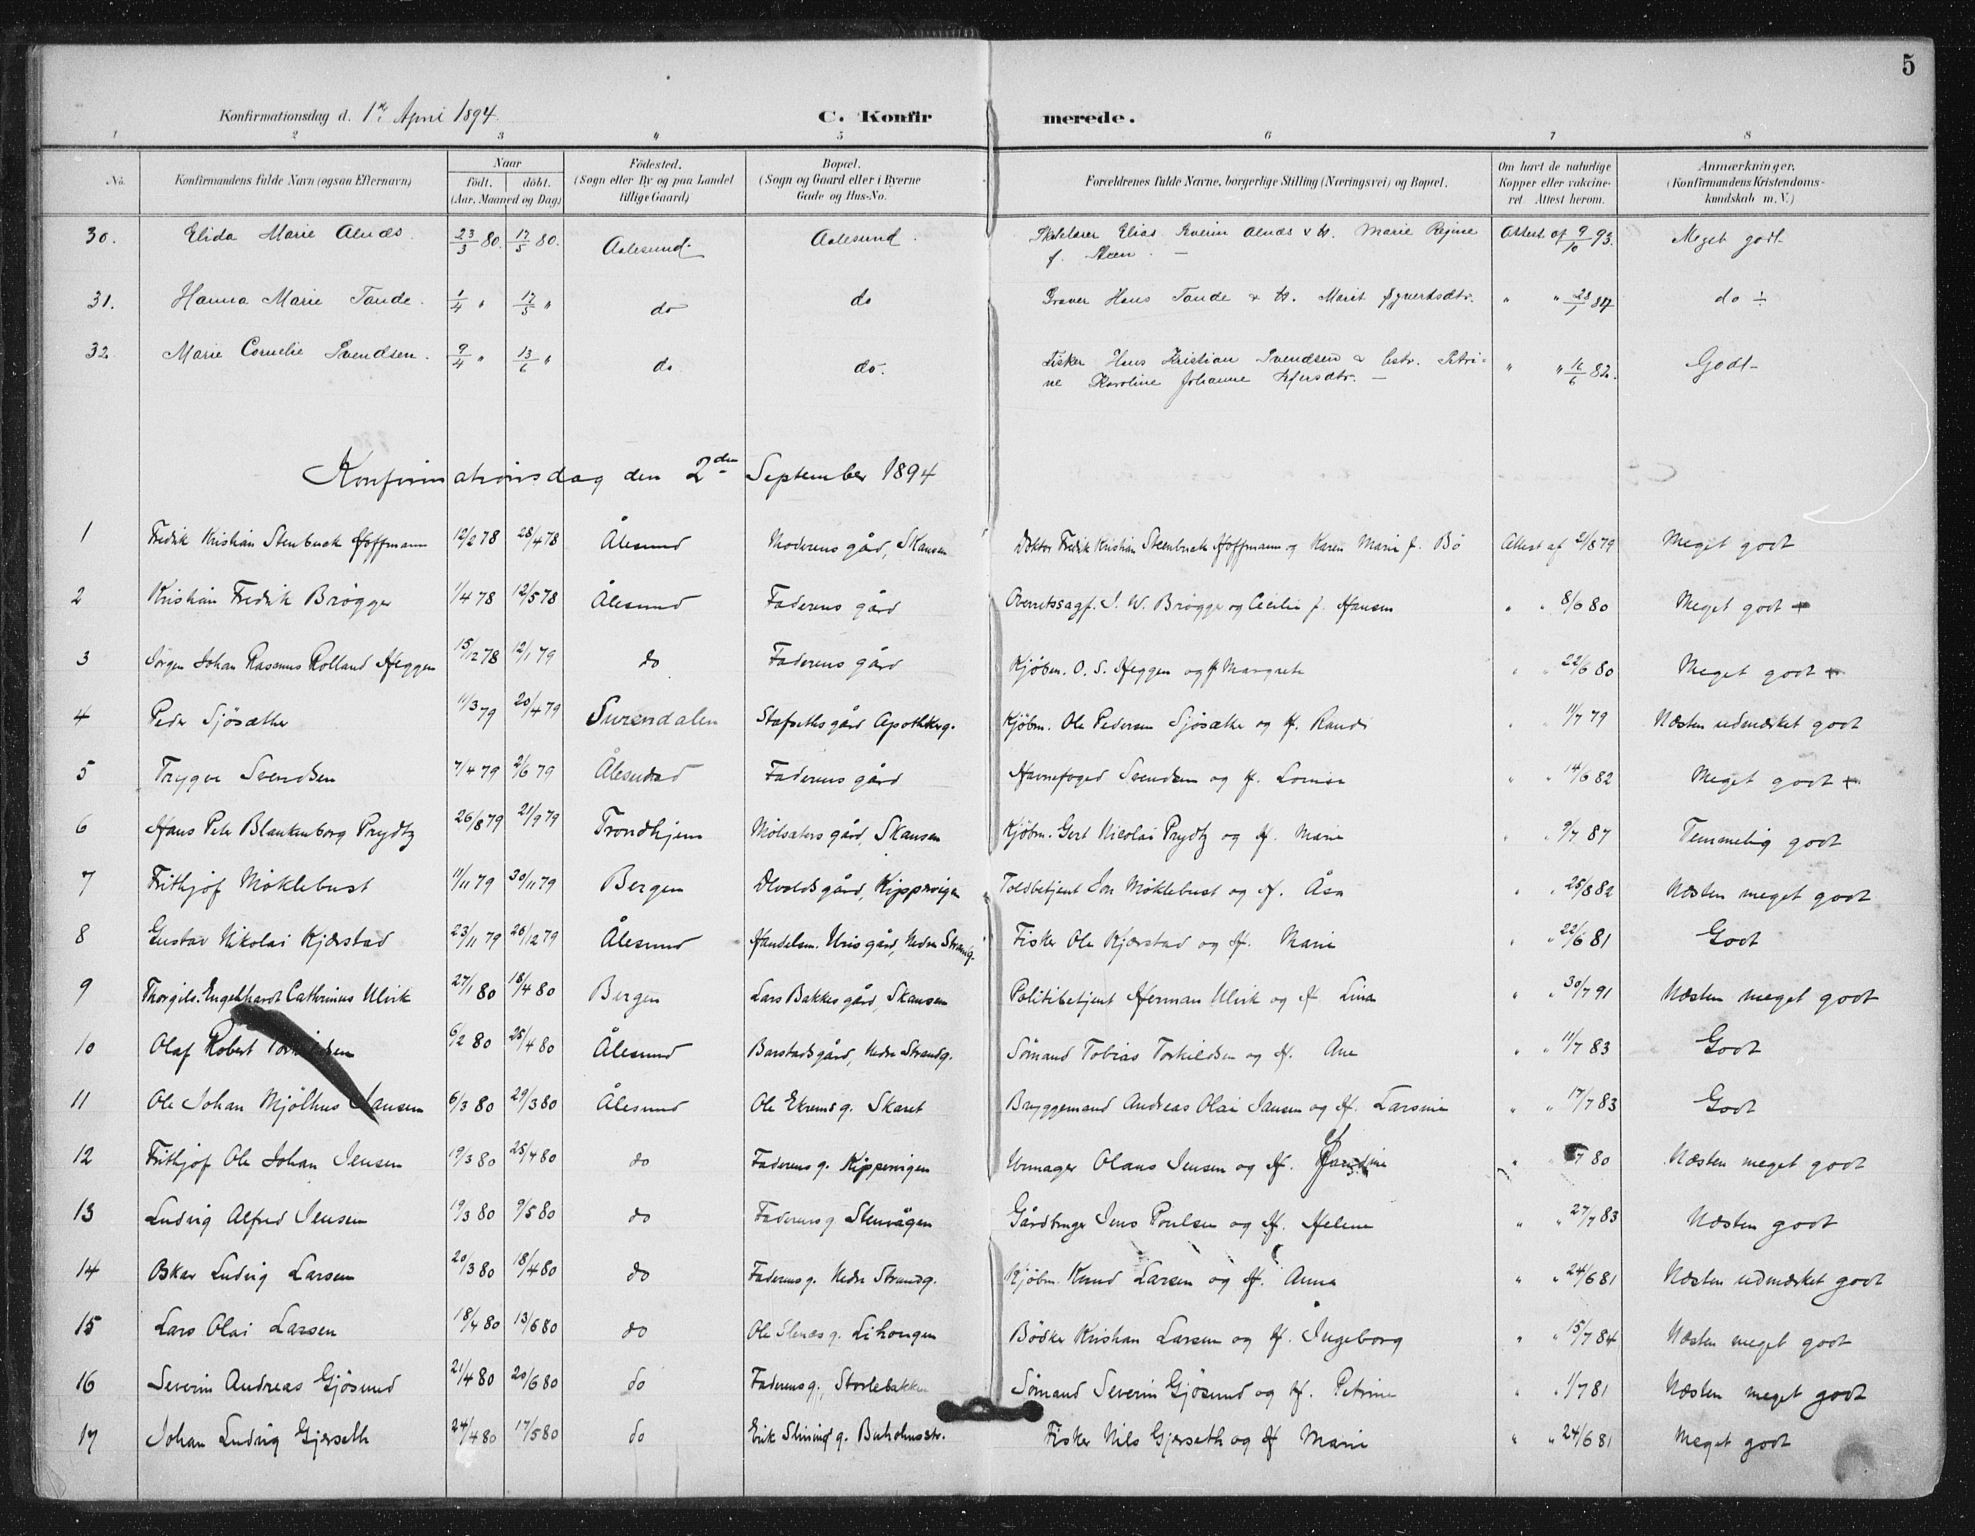 5
Konfirmationsdag d. 1ste April 1894.
C. Konfirmerede.
1 2 3 4 5 6 7 8
No. Konfirmandens fulde Navn (ogsaa Efternavn) Naar født. døbt. (Aar, Maaned og Dag) Fødested. (Sogn eller By og paa Landet tillige Gaard) Bopæl. (Sogn og Gaard eller i Byerne Gade og Hus-No. Forældrenes fulde Navne, borgerlige Stilling (Næringsvei) og Bopæl. Om havt de naturlige Kopper eller vakcineret. Attest herom. Anmærkninger. (Konfirmandens Kristendomskundskab m. V.)
30. Elida Marie Alnæs. 23/3 80. 17/5 80. Aalesund. Aalesund. Elias Severin Alnæs & H. Marie Regine Attest af 9/10 93. Meget godt
f. Steen. —
31. Hanna Marie Tande. 1/4 " 17/5 " do do Graver Hans Tande & H. Marit " " 28/1 84 do ÷
32. Marie Cornelie Svendsen. 9/4 " 13/6 " do do. Fisker Hans Kristian Svendsen & Petri- " " 16/6 82. Godt
ne Karoline Johanne —
Konfirmationsdag den 2den September 1894
1 Fredrik Kristian Stenbuck Hoffmann 12/2 78 28/4 78 Ålesund Moderens gård, Skansen Doktor Fredrik Kristian Steenbuck Hoffmann og Karen Marie f. Bö Attest af 2/8 79 Meget godt
2 Kristian Fredrik Brøgger 1/4 78 12/5 78 Ålesund Faderens gård Overretssagf. J. W. Brøgger og Cecilie f. Hansen " " 8/6 80 Meget godt +
3 Jørgen Johan Rasmus Rolland Heggen 15/12 78 12/1 79 do Faderens gård Kjøbm. O. S. Heggen og H Margrete " " 22/6 80 Meget godt +
4 Peder Sjösæther 11/3 79 20/4 79 Surendalen Stafsethsgård Apothkerg. Kjøbm. Ole Pedersen Sjösæthe og H. Randi " " 11/7 79 Næsten udmærket godt
5 Trygve Svendsen 7/4 79 2/6 79 Ålesund Faderens gård Havnefoged Svendsen og H. Lovise " " 14/6 82 Meget godt +
6 Hans Peter Blankenborg Prydtz 26/8 79 21/9 79 Trondhjem Mölsæters gård, Skansen Kjøbm. Gert Nicolai Prydtz og H. Marie " " 9/7 87 Temmelig godt
7 Frithjof Möklebust 11/11 79 30/11 79 Bergen Devolds gård, Kippervigen Toldbetjent Jon Möklebust og H. Åsa " " 25/8 82 Næsten meget godt
8 Gustav Nikolai Kjærstad 23/11 79 26/12 79 Ålesund Handelsm. Uris gård, Nedre Strandg. Fisker Ole Kjærstad og H. Marie " " 22/6 81 Godt
9 Thorgils Engelhardt Cathrinus Ulvik 27/1 80 18/4 80 Bergen Lars Bakkes gård, Skansen Politibetjent Herman Ulvik og H Lina " " 30/7 91 Næsten meget godt
10 Olaf Robert Torkildsen 6/2 80 25/4 80 Ålesund Barstadsgård, Nedre Strandg. Sømand Tobias Torkildsen og H. Ane " " 11/7 83 Godt
11 Ole Johan Mjölhus Jansen 6/3 80 29/3 80 Ålesund Ole Ekrems g. Skaret Bryggemand Andreas Olai Jansen og H. Larsine " " 17/7 83 Godt
12 Frithjof Ole Johan Jensen 19/3 80 25/4 80 do Faderens g. Kippervigen Urmager Olaus Jensen og H. " 7 80 Næsten meget godt
13 Ludvig Alfred Jensen 19/3 80 9/5 80 do Faderens g Stenvågen Gårdbruger Jens Poulsen og H. Helene " " 27/7 83 Næsten godt
14 Oskar Ludvig Larsen 20/3 80 18/4 80 do Faderens g. Nedre Strandg. Kjøbm. Knud Larsen og H. Anna " " 24/6 81 Næsten udmærket godt
15 Lars Olai Larsen 18/4 80 13/6 80 do Ole Slenæs g. Lihaugen Bödker Kristian Larsen og H. Ingeborg " " 15/7 84 Næsten meget godt
16 Severin Andreas Gjösund 21/4 80 20/6 80 do Faderens g., Storlebakken Sömand Severin Gjösund og H. Petrine " " 1/7 81 Næsten meget godt
17 Johan Ludvig Gjerseth 24/4 80 17/5 80 do Erik Slinings g. Buholmsstr. Fisker Nils Gjerseth og H Marie " " 24/6 81 Meget godt